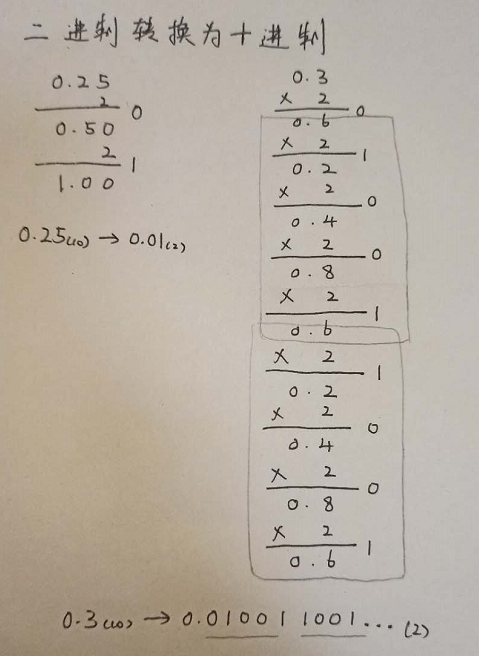 二进制转换为十进制
0.25
2
0
0.50
2
1
1.00
0.25(10) → 0.01(2)
0.3
× 2
0
0.6
× 2
1
0.2
× 2
0
0.4
× 2
0
0.8
× 2
1
0.6
× 2
1
0.2
× 2
0
0.4
× 2
0
0.8
× 2
1
0.6
0.3(10) → 0.01001 1001... (2)